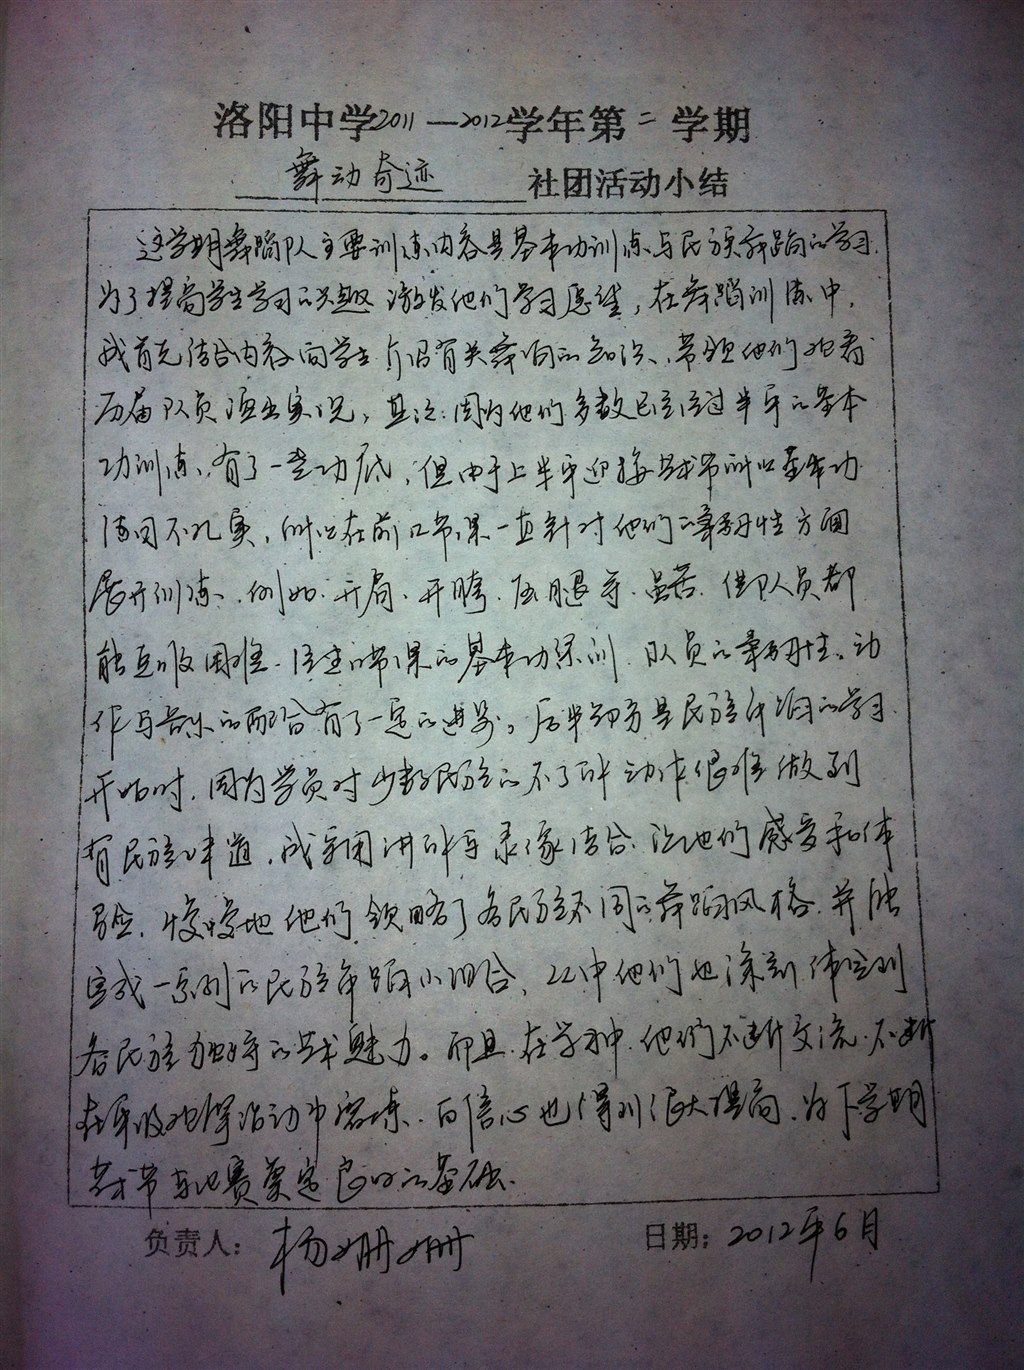 洛阳中学2011—2012学年第二学期
舞动奇迹 社团活动小结
这学期舞蹈队主要训练内容是基本功训练与民族舞蹈的学习.
为了提高学生学习的兴趣 激发他们学习热情，在舞蹈训练中,
我首先结合内容向学生介绍有关舞蹈的知识、带领他们观看
历届队员演出实况，其次:因为他们多数已经经过半年的基本
功训练、有了一些功底，但由于上半年迎接艺术节所以基本功
练习不扎实，所以在前几节课一直针对他们的柔韧性方面
展开训练、例如:开肩、开胯、压腿等.虽苦.但队员都
能克服困难.经过几节课的基本功练训.队员的柔韧性、动
作与音乐的配合有了一定的进步。后半部分是民族舞蹈的学习.
开始时.因为学员对少数民族的不了解 动作很难做到
有民族味道.我采用讲解与录像结合.让他们感受和体
验.慢慢地他们领略了各民族不同的舞蹈风格.并能
完成一系列的民族舞蹈小组合、从中他们也深刻体会到
各民族独特的艺术魅力。而且.在学习中.他们不断交流.不断
在年级观摩活动中磨练.自信心也得到很大提高.为下学期
艺术节与比赛奠定良好的基础.
负责人：杨姗姗 日期：2012年6月